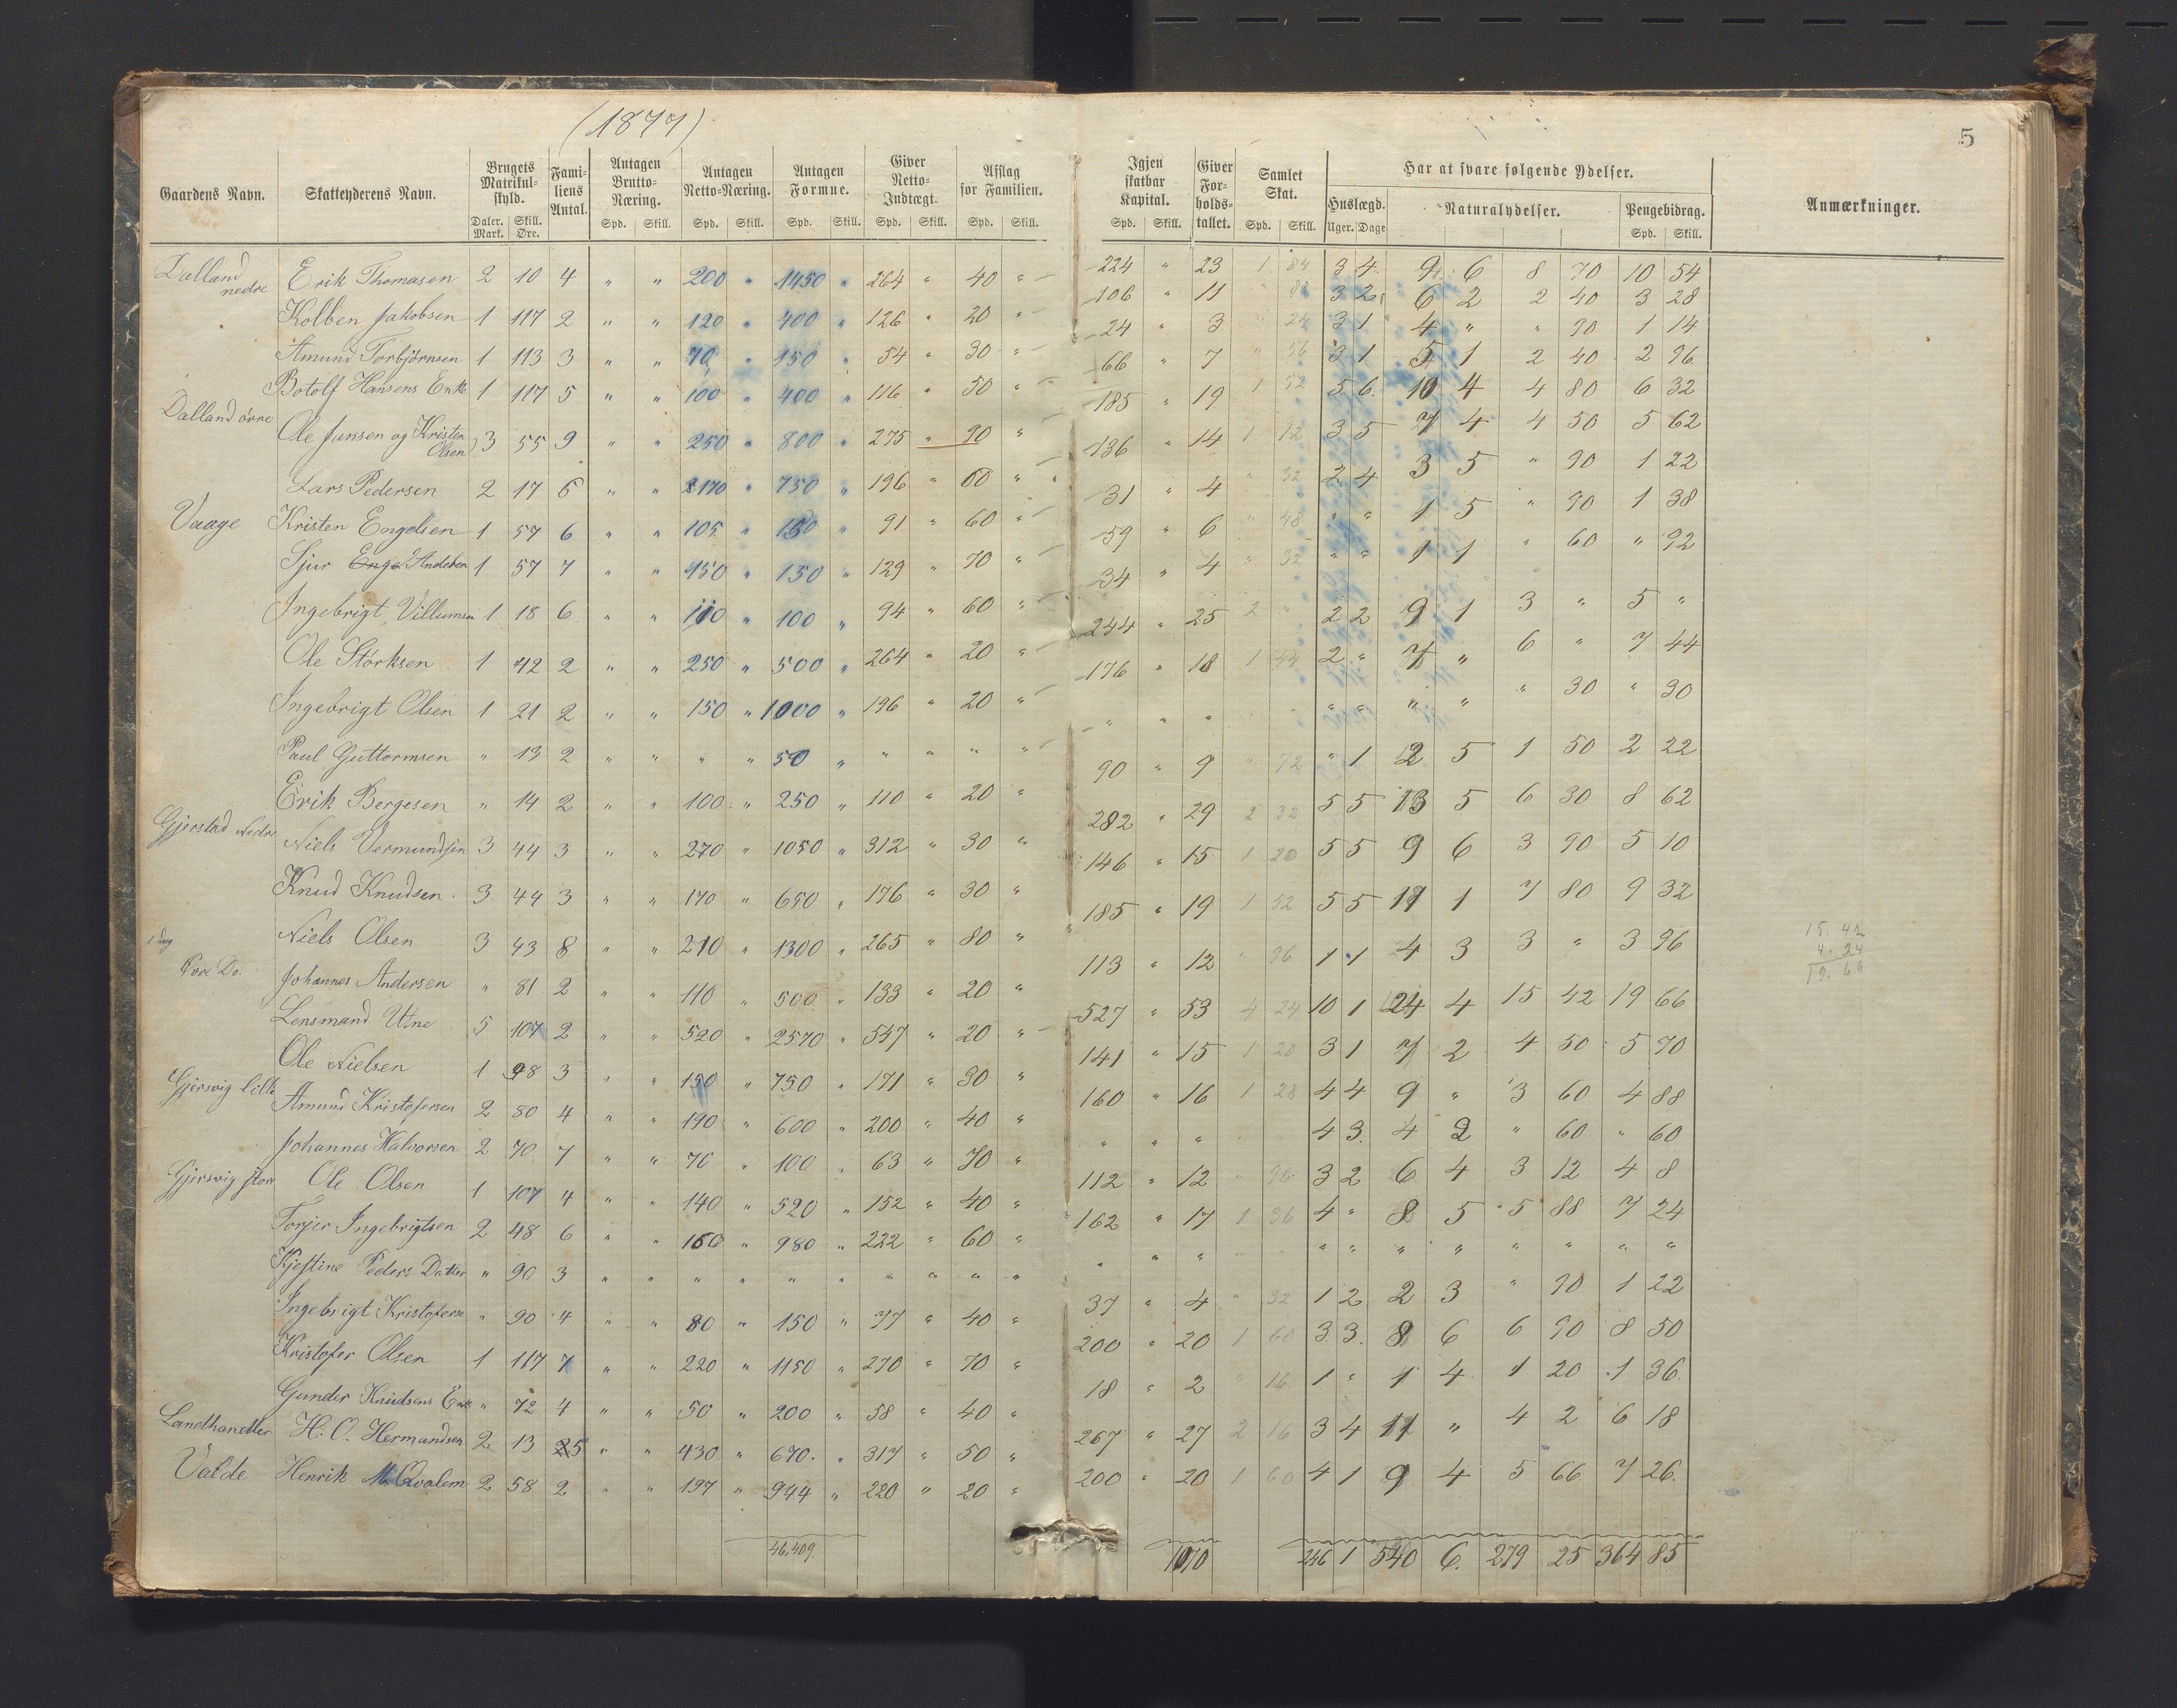 (1877)
5
Gaardens Navn. Skatteyderens Navn. Brugets Matrikul-skyld. Fami-liens Antal. Antagen Brutto-Næring. Antagen Netto-Næring. Antagen Formue. Giver Netto-Indtægt. Afslag for Familien. Igjen skatbar Kapital. Giver For-holds-tallet. Samlet Skat. Har at svare følgende Ydelser. Anmærkninger.
Huslægd. Naturalydelser. Pengebidrag.
Daler. Mark. Skill. Øre. Spd. Skill. Spd. Skill. Spd. Skill. Spd. Skill. Spd. Skill. Spd. Skill. Spd. Skill. Uger. Dage Spd. Skill.
Dalland nedre Erik Thomasen 2 10 4 " " 200 " 1450 " 264 " 40 " 224 " 23 1 84 3 4 9 6 8 70 10 54
Kolben Jakobsen 1 117 2 " " 120 " 400 " 126 " 20 " 106 " 11 " 88 3 2 6 2 2 40 3 28
Amund Torbjørnsen 1 113 3 " " 70 " 150 " 54 " 30 " 24 " 3 " 24 3 1 4 " " 90 1 14
Botolf Hansens Enke 1 117 5 " " 100 " 400 " 116 " 50 " 66 " 7 " 56 3 1 5 1 2 40 2 96
Dalland øvre Ole Junsen og Kristen Olsen 3 55 9 " " 250 " 800 " 275 " 90 " 185 " 19 1 52 5 6 10 4 4 80 6 32
Lars Pedersen 2 17 6 " " 170 " 750 " 196 " 60 " 136 " 14 1 12 3 5 7 4 4 50 5 62
Vaage Kristen Engelsen 1 57 6 " " 105 " 150 " 91 " 60 " 31 " 4 " 32 2 4 3 5 " 90 1 22
Sjur Andersen 1 57 7 " " 150 " 150 " 129 " 70 " 59 " 6 " 48 " " 1 5 " 90 1 38
Ingebrigt Villumsen 1 18 6 " " 110 " 100 " 94 " 60 " 34 " 4 " 32 " " 1 1 " 60 " 92
Ole Størksen 1 42 2 " " 250 " 500 " 264 " 20 " 244 " 25 2 " 2 2 9 1 3 " 5 "
Ingebrigt Olsen 1 21 2 " " 150 " 1000 " 196 " 20 " 176 " 18 1 44 2 " 7 " 6 " 7 44
Paul Guttormsen " 13 2 " " " " 50 " " " " " " " " " " " " " 30 " 30
Erik Bergesen " 14 2 " " 100 " 250 " 110 " 20 " 90 " 9 " 72 " 1 2 5 1 50 2 22
Gjerstad Nedre Niels Vermundsen 3 44 3 " " 270 " 1050 " 312 " 30 " 282 " 29 2 32 5 5 13 5 6 30 8 62
Knud Knudsen 3 44 3 " " 170 " 650 " 176 " 30 " 146 " 15 1 20 5 5 9 6 3 90 5 10
Niels Olsen 3 43 8 " " 210 " 1300 " 265 " 80 " 185 " 19 1 52 5 5 11 1 7 80 9 32
Øvre Do. Johannes Andersen " 81 2 " " 110 " 500 " 133 " 20 " 113 " 12 " 96 1 1 4 3 3 " 3 96
Lensmand Utne 5 107 2 " " 520 " 2570 " 547 " 20 " 527 " 53 4 24 10 1 24 4 15 42 19 66
15. 42
4. 24
19. 66
Ole Nielsen 1 98 3 " " 150 " 750 " 171 " 30 " 141 " 15 1 20 3 1 7 2 4 50 5 70
Gjersvig lille Amund Kristofersen 2 80 4 " " 190 " 600 " 200 " 40 " 160 " 16 1 28 4 4 9 " 3 60 4 88
Johannes Halvorsen 2 70 7 " " 70 " 100 " 63 " 70 " " " " 4 3 4 2 " 60 " 60
Gjersvig stor Ole Olsen 1 107 4 " " 140 " 520 " 152 " 40 " 112 " 12 " 96 3 2 6 4 3 12 4 8
Torjer Ingebrigtsen 2 48 6 " " 160 " 980 " 222 " 60 " 162 " 17 1 36 4 " 8 5 5 88 7 24
Kjestine Peders Datter " 90 3 " " " " " " " " " " " " " " " " " " " " "
Ingebrigt Kristoferse " 90 4 " " 80 " 150 " 77 " 40 " 37 " 4 " 32 1 2 2 3 " 90 1 22
Kristofer Olsen 1 117 7 " " 220 " 1150 " 270 " 70 " 200 " 20 1 60 3 3 8 6 6 90 8 50
Gunder Knudsens Enke " 72 4 " " 50 " 200 " 58 " 40 " 18 " 2 " 16 1 " 1 4 1 20 1 36
Landhandler H. O. Hermandsen 2 13 5 " " 430 " 670 " 317 " 50 " 267 " 27 2 16 3 4 11 " 4 2 6 18
Valde Henrik M. Qvalem 2 58 2 " " 197 " 944 " 220 " 20 " 200 " 20 1 60 4 1 9 4 5 66 7 26
46,409 1070 246 1 540 6. 279 25 364 85